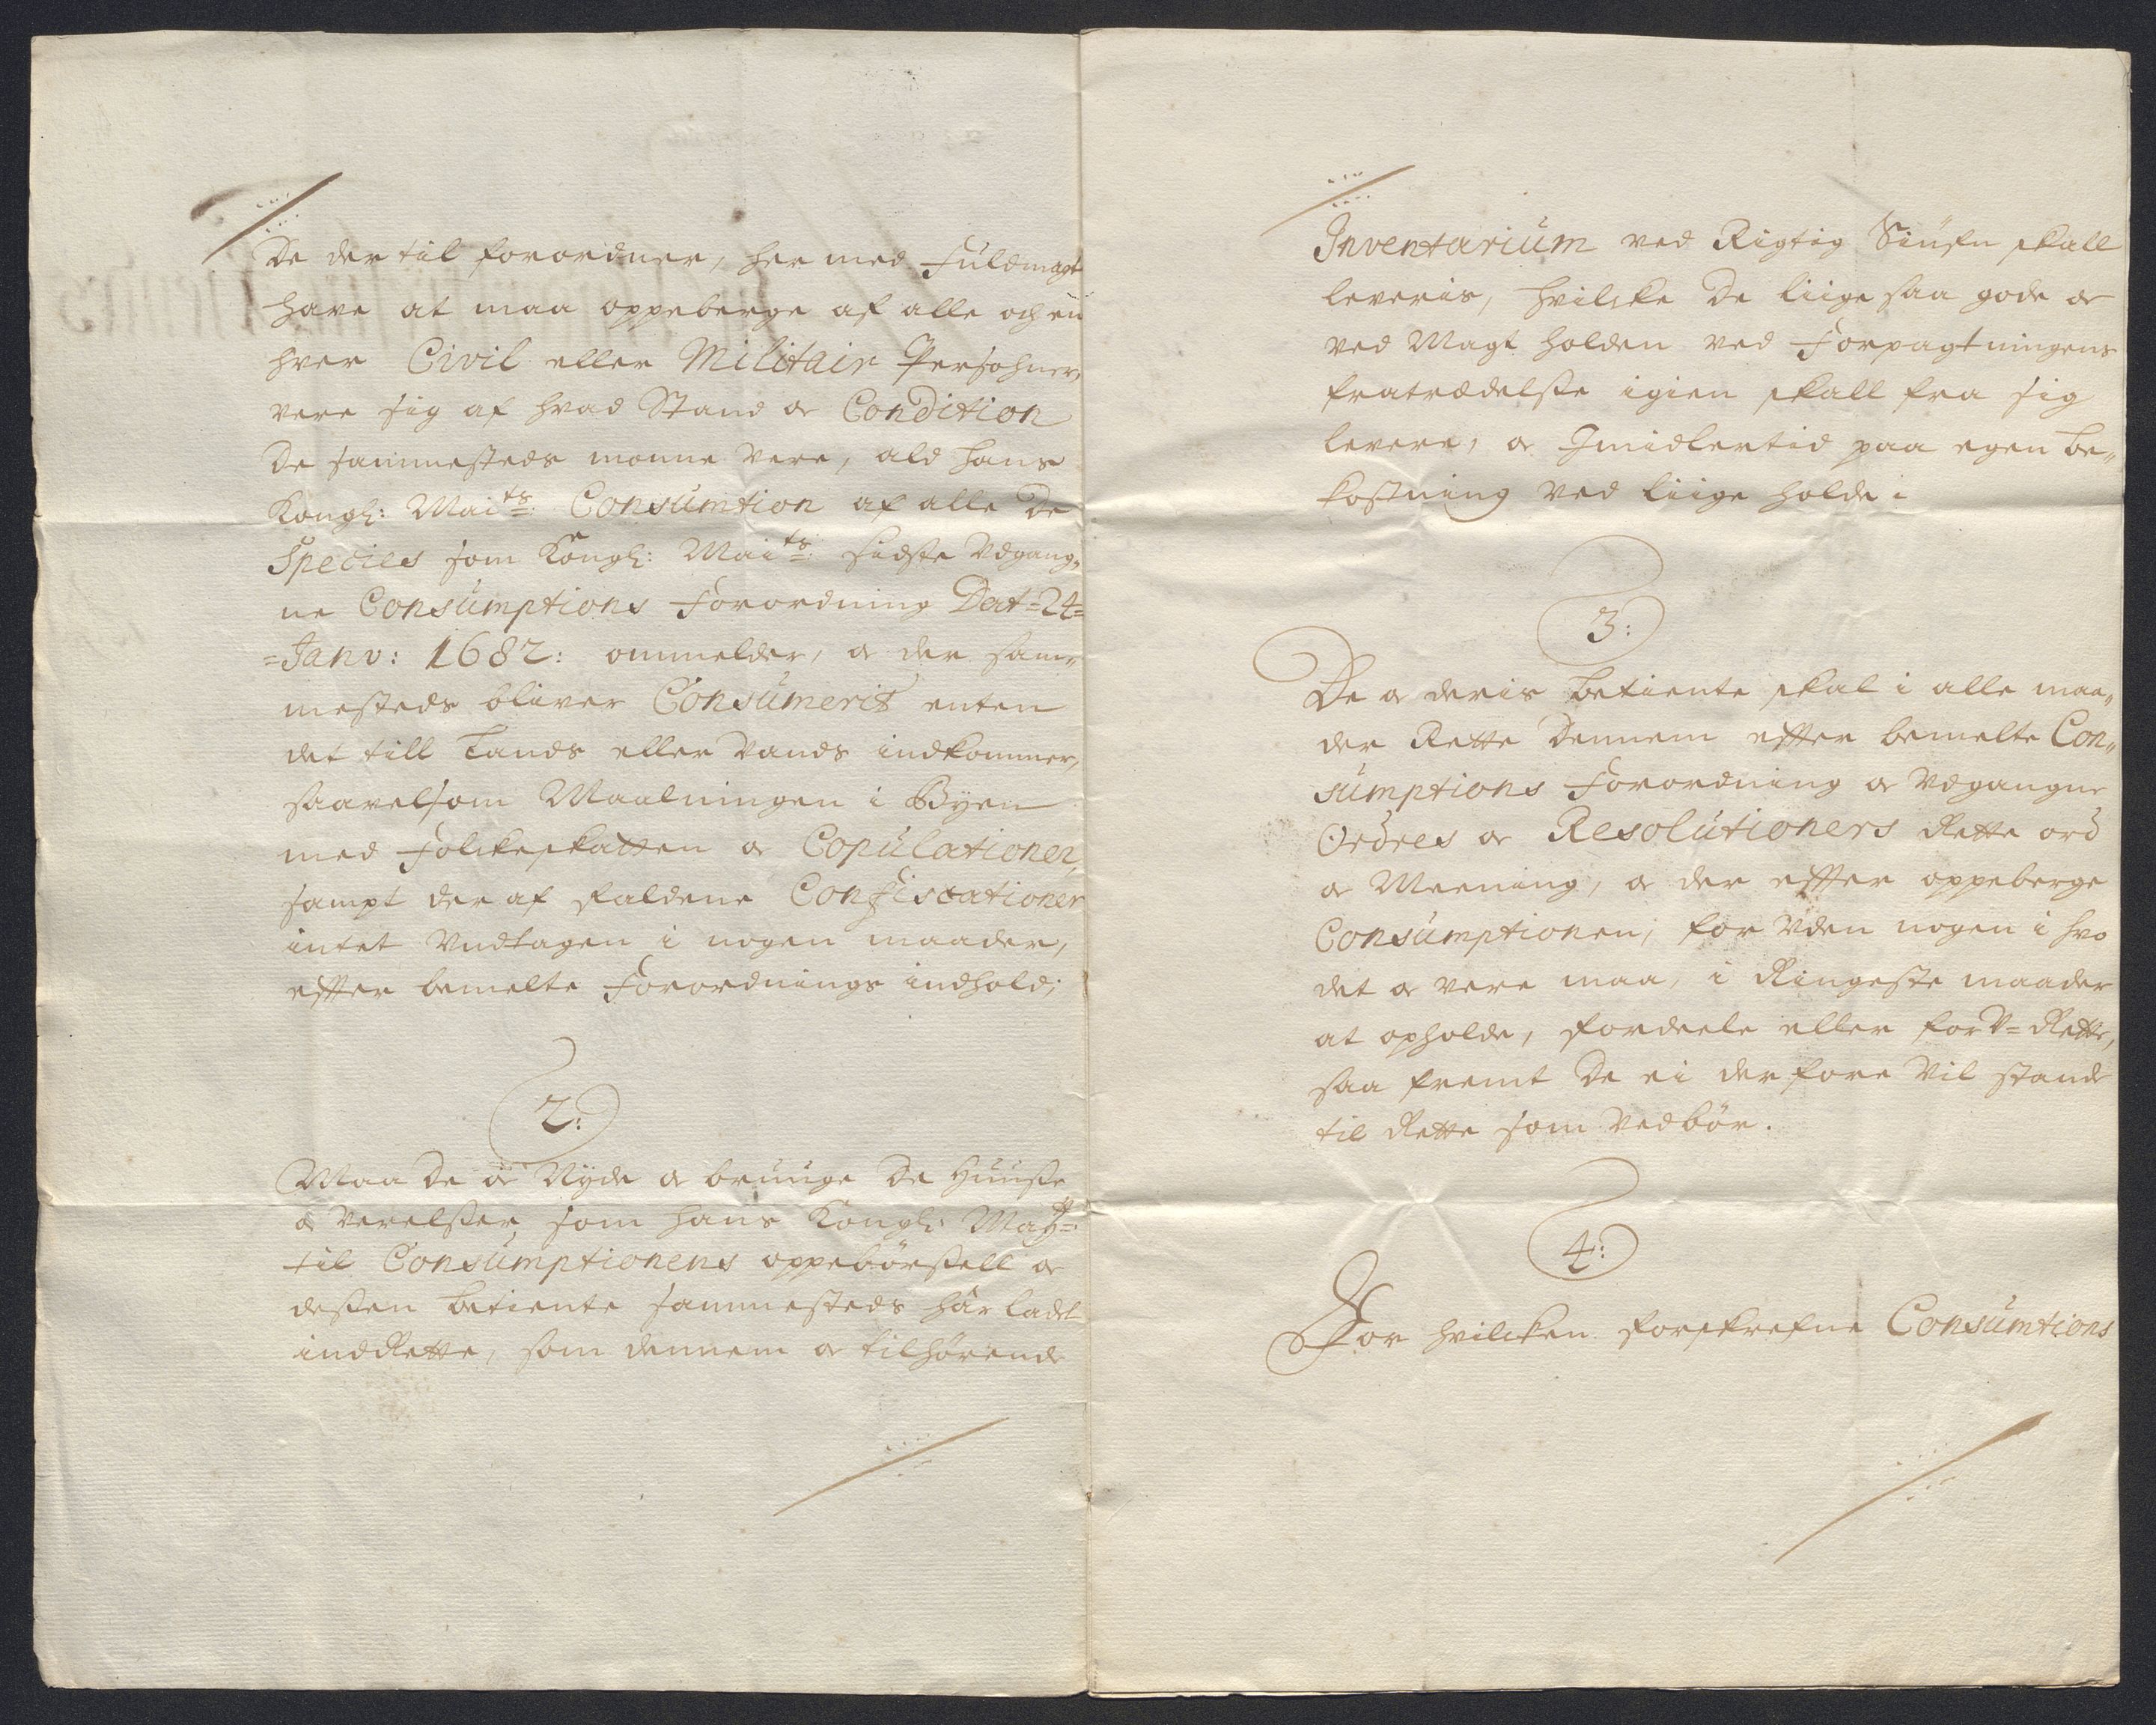 De der til forordner, her med Fuldmagt
have at maa oppeberge af alle och en
hver Civil eller Militair Persohner,
vere sig af hvad Stand og Condition
De sammesteds monne vere, ald hans
Kongl: Maits: Consumtion af alle De
Species som Kongl: Maits: sidste Udgang„
ne Consumptions Forordning Dat=24=
=Janv: 1682: ommelder, og der sam„
mesteds bliver Consumerit enten
det till Lands eller Vands indkommer,
saavelsom Maalningen i Byen
med Folckeskatten og Copulationer,
sampt der af faldene Confiscationer
intet Undtagen i nogen maader,
effter bemelte Forordnings indhold;
2:
Maa De og Nyde og bruuge De Huuse
og Verelser som hans Kongl: Maytt:
til Consumptionens oppebørsell og
dessen betiente sammesteds har ladet
indRette, som dennem og tilhørende
Inventarium ved Rigtig Siufn skall
leveris, hvilcke De liige saa gode og
ved Magt holden ved Forpagtningens
fratrædelse igien skall fra sig
levere, og Imidlertid paa egen be„
kostning ved liige holde.
3:
De og deris betiente skal i alle maa„
der Rette Dennem effter bemelte Con„
sumptions Forordning og Udgangne
Ordres og Resolutioners Rette ord
og Meening, og der effter oppeberge
Consumptionen, for Uden nogen i hvo
det og vere maa, i Ringeste maader
at opholde, fordeele eller forU=Rette,
saa fremt De ei der fore Vil stande
til Rette som Vedbør.
4:
For hvilcken forskrefne Consumtions